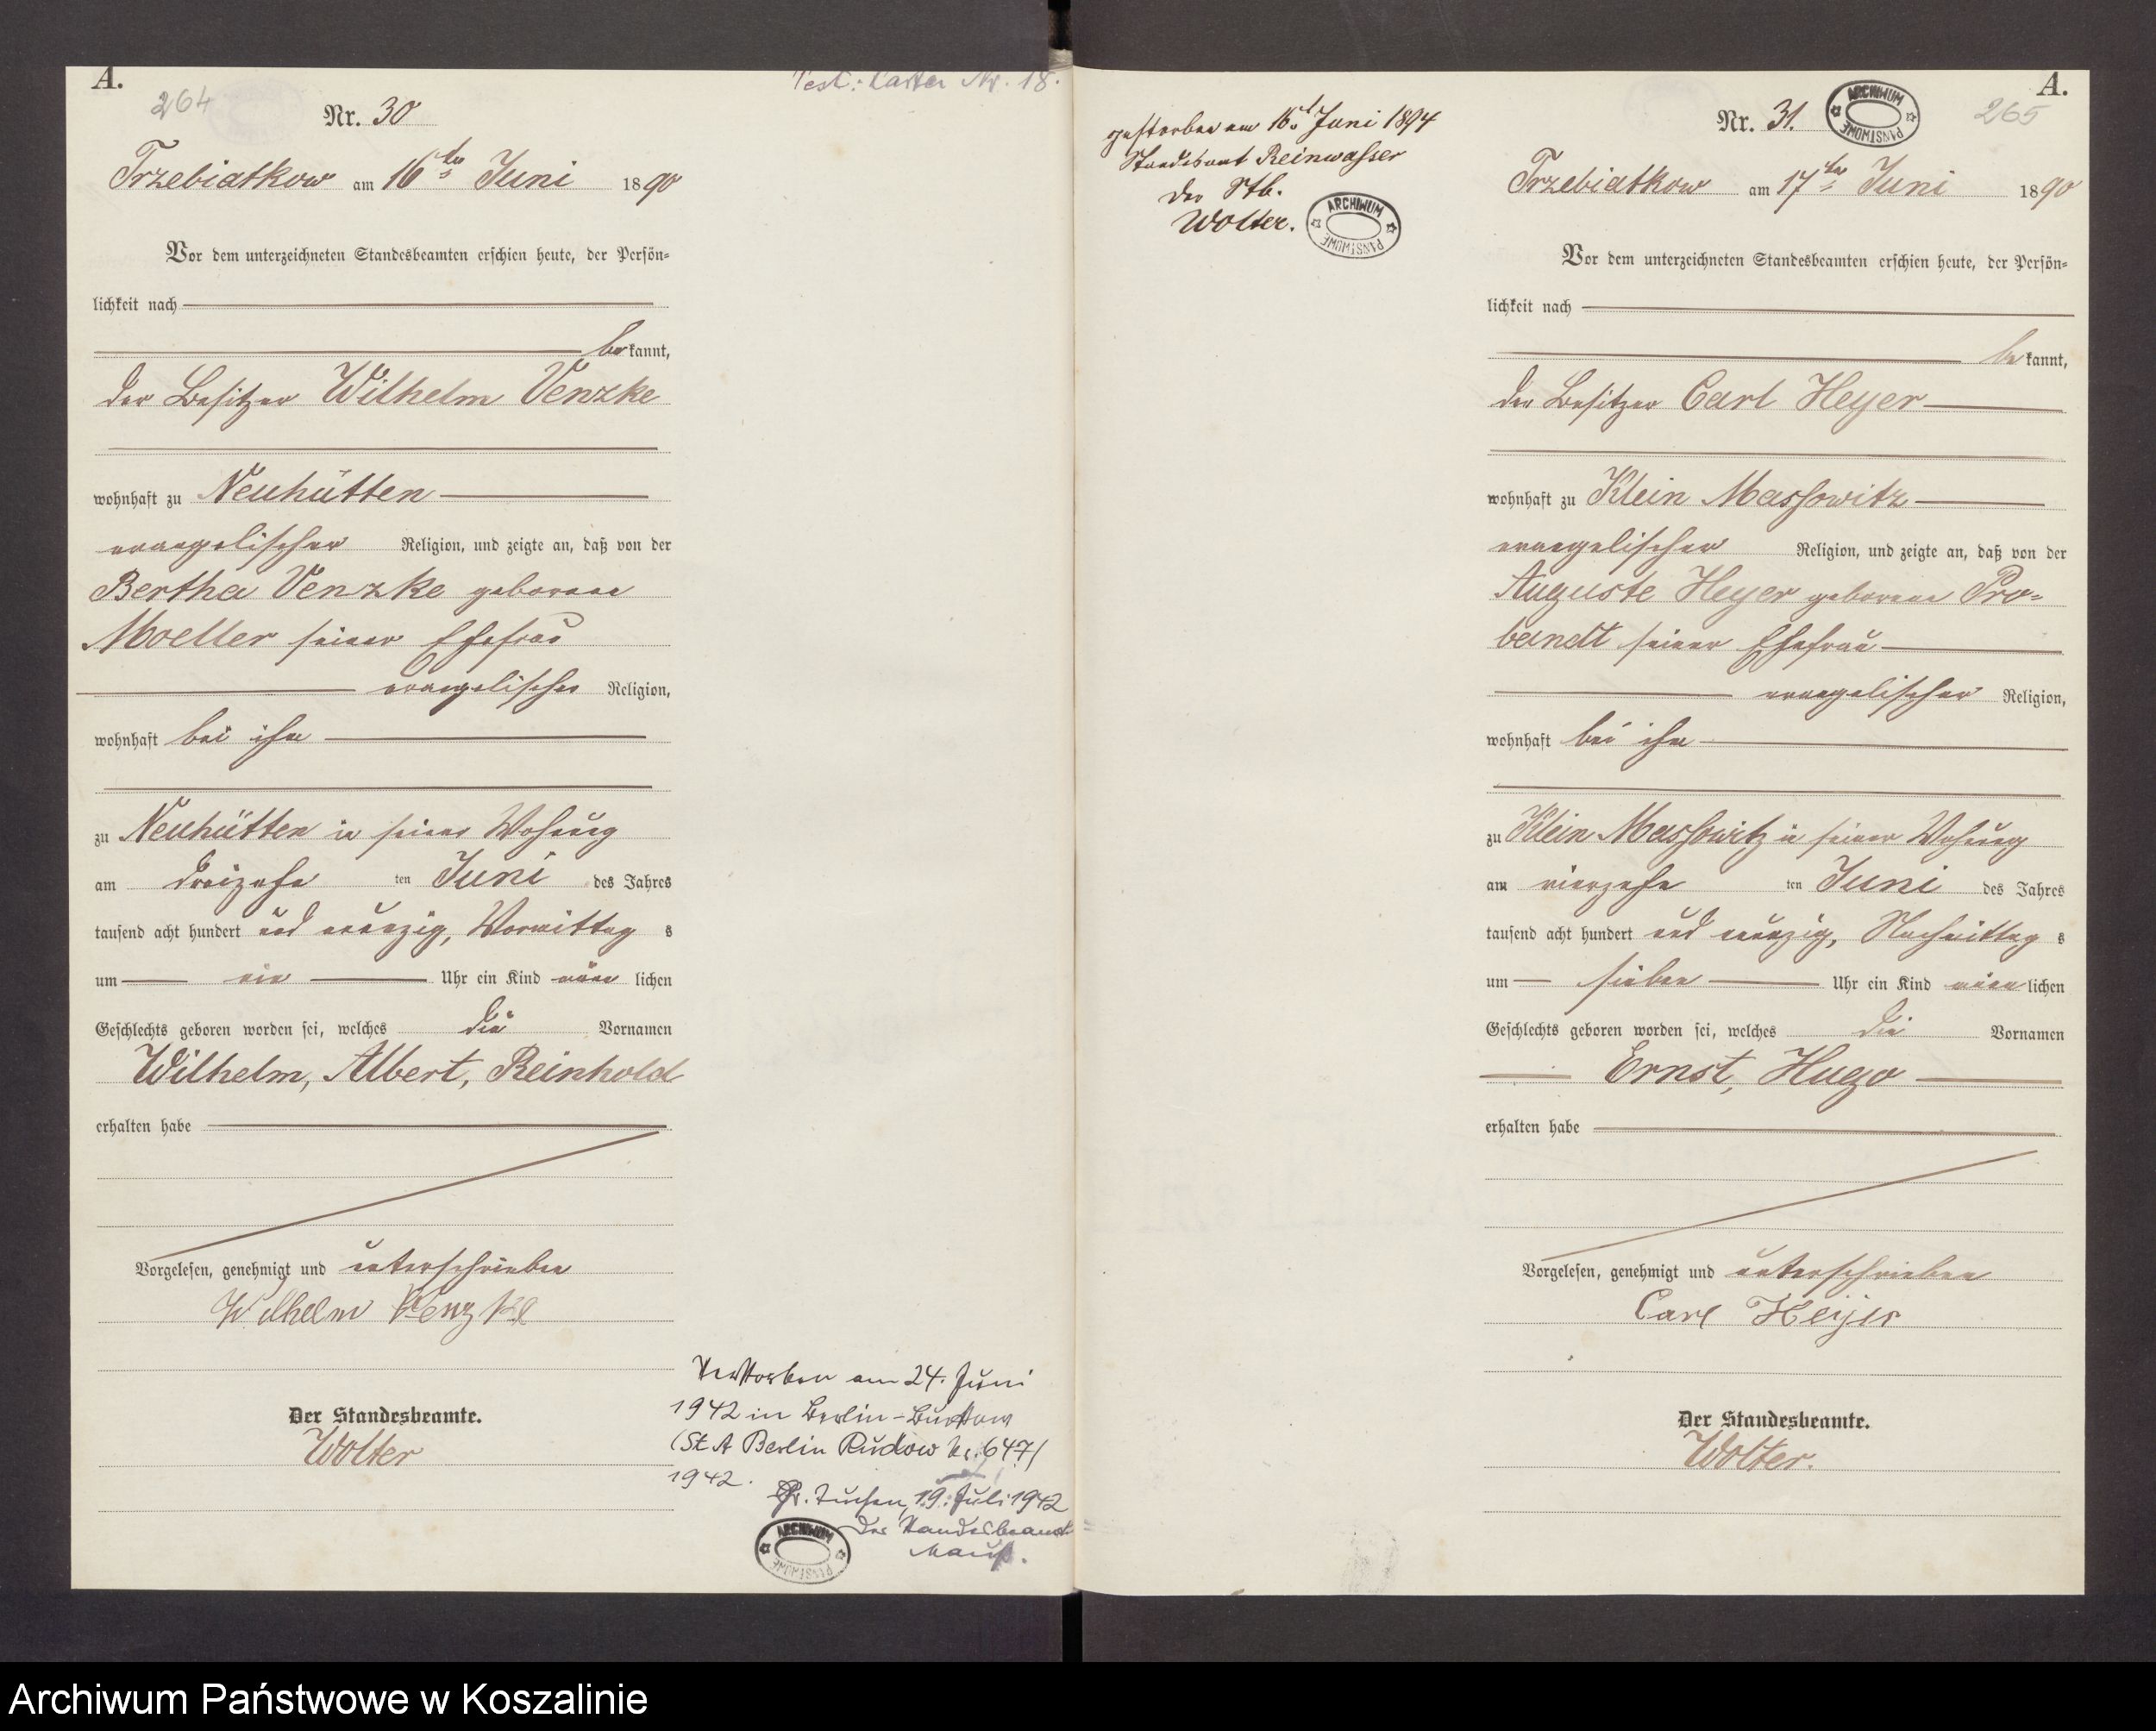 A.
264
Nr. 30
Trzebiatkow am 16ten Juni 1890
Vor dem unterzeichneten Standesbeamten erschien heute, der Persön-
lichkeit nach
bekannt,
der Besitzer Wilhelm Venzke
wohnhaft zu Neuhütten
evangelischer Religion, und zeigte an, daß von der
Bertha Venzke geborene
Moeller seiner Ehefrau
evangelischer Religion,
wohnhaft bei ihm
zu Neuhütten in seiner Wohnung
am dreizehn ten Juni des Jahres
tausend acht hundert und neunzig, Vormittag s
um ein Uhr ein Kind männ lichen
Geschlechts geboren worden sei, welches die Vornamen
Wilhelm, Albert, Reinhold
erhalten habe
Vorgelesen, genehmigt und unterschrieben
Wilhelm Venzke
Der Standesbeamte.
Wolter
Nr. 18.
Verstorben am 24. Juni
1942 in Berlin-
(St A Berlin Rudow Nr. 647/
1942.
Gr. Tuchen, 19. Juli 1942
Der Standesbeamte
ARCHIWUM PAŃSTWOWE
gestorben am 16. Juni 1894
Standesamt Reinwasser
Der Stb.
Wolter.
ARCHIWUM PAŃSTWOWE
A.
265
Nr. 31.
ARCHIWUM PAŃSTWOWE
Trzebiatkow am 17ten Juni 1890
Vor dem unterzeichneten Standesbeamten erschien heute, der Persön-
lichkeit nach
bekannt,
der Besitzer Carl Heyer
wohnhaft zu Klein Massowitz
evangelischer Religion, und zeigte an, daß von der
Auguste Heyer geborene Pro-
bandt seiner Ehefrau
evangelischer Religion,
wohnhaft bei ihm
zu Klein Massowitz in seiner Wohnung
am vierzehn ten Juni des Jahres
tausend acht hundert und neunzig, Nachmittag s
um sieben Uhr ein Kind männ lichen
Geschlechts geboren worden sei, welches die Vornamen
Ernst, Hugo
erhalten habe
Vorgelesen, genehmigt und unterschrieben
Carl Heijer
Der Standesbeamte.
Wolter.
Archiwum Państwowe w Koszalinie